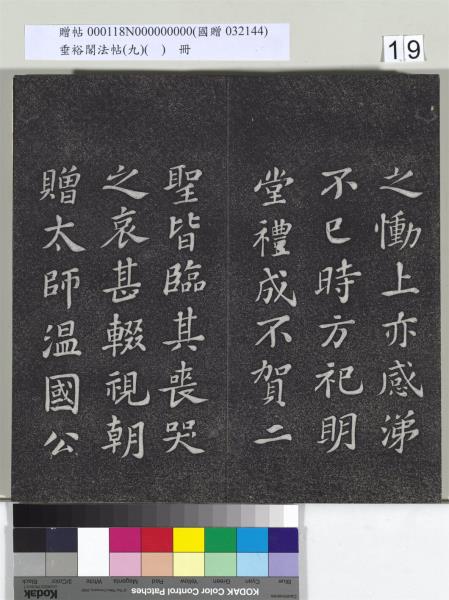 贈帖 000118N000000000(國贈 032144)
垂裕閣法帖(九)(　)　冊
19
之慟上亦感涕
不已時方祀明
堂禮成不賀二
聖皆臨其喪哭
之哀甚輟視朝
贈太師溫國公
Blue Cyan Green Yellow Red Magenta White 3/Color Black
Kodak KODAK Color Control Patches